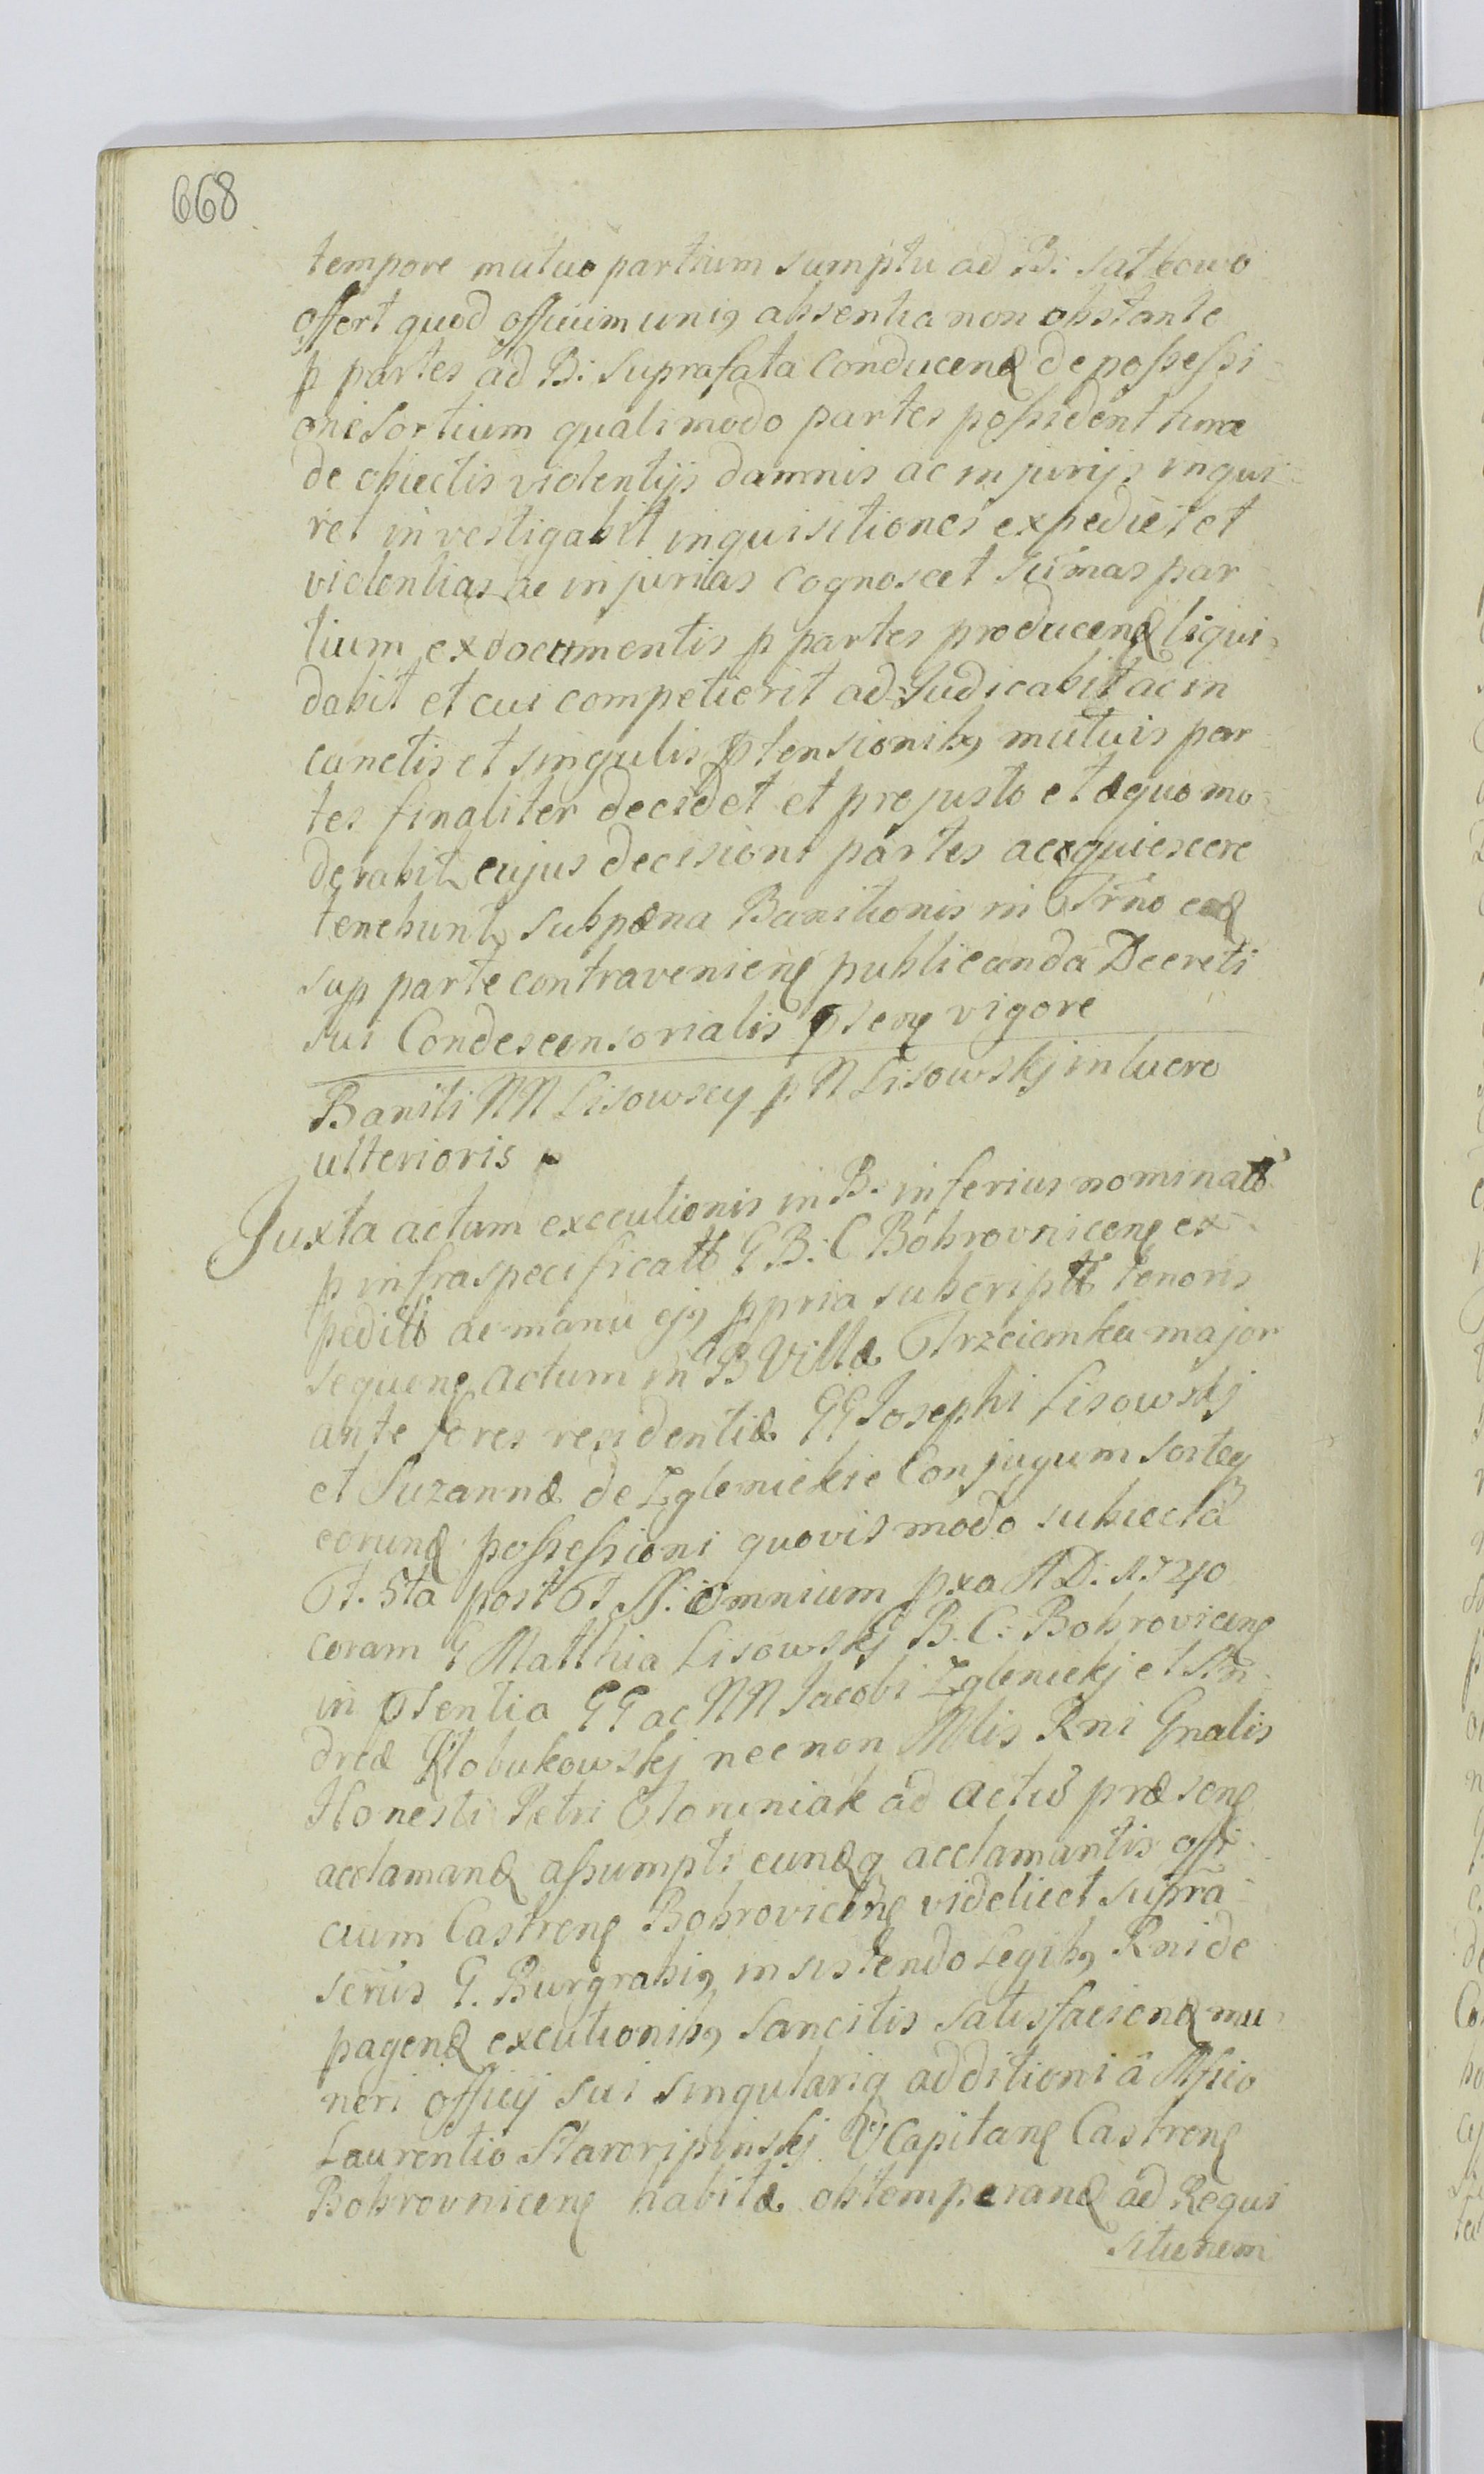 668
tempore mutuo partium sumptu ad B: Satkowo
offert quod officium uniq absentia non obstante
p partes ad B: suprafata conducend de possessi-
one sortium quali modo partes possident hinc
de obiectis violentijs damnis ac injurijs inqui-
ret investigabit inquisitiones expediet et
violentias ac injurias cognoscet sumas par-
tium ex documentis p partes producend liqui-
dabit et cui competierit adjudicabit ac in
cunctis et singulis ptensionibq mutuis par-
tes finaliter decidet et pro justo et æquo mo-
derabit, cujus decisioni partes acquiescere
tenebunt, sub pæna Banitionis in Trno eod
sup parte contravenien publicanda Decreti
sui Condescensorialis psen vigore
Baniti NN Lisowscy p N Lisowskj in lucro
ulterioris
Juxta actum executionis in B. inferius nominato
p infraspecificatt G B: C Bobrovnicen ex-
peditt ac manu ejq ppria subscriptt tenoris
sequen Actum in B Villæ Trzcianka major
ante fores residentiæ GG Josephi Lisowskj
et Suzannæ de Zglenickie Conjugum sorteq
eorund possessioni quovis modo subiecta
F. 5ta post F SS: omnium pxa A D: 1740
coram G Matthia Lisowskj B. C: Bobrovicen
in ptentia GG ac NN Jacobi Zglenickj et An-
dreæ Kłobukowskj nec non Mlis Rni Gnalis
Honesti Petri Toruniak ad actū præsen
acclamand assumpti eundq acclamantis offi-
cium Castren Bobrovicen videlicet supra-
scrius G. Burgrabiq insistendo Legibq Rni de
pagend executionibq sancitis satisfaciend mu-
neri officij sui singulariq additioni a Mfico
Laurentio Skaroripinskj V Capitan Castren
Bobrovnicen habitæ obtemperand ad Requi
situnem